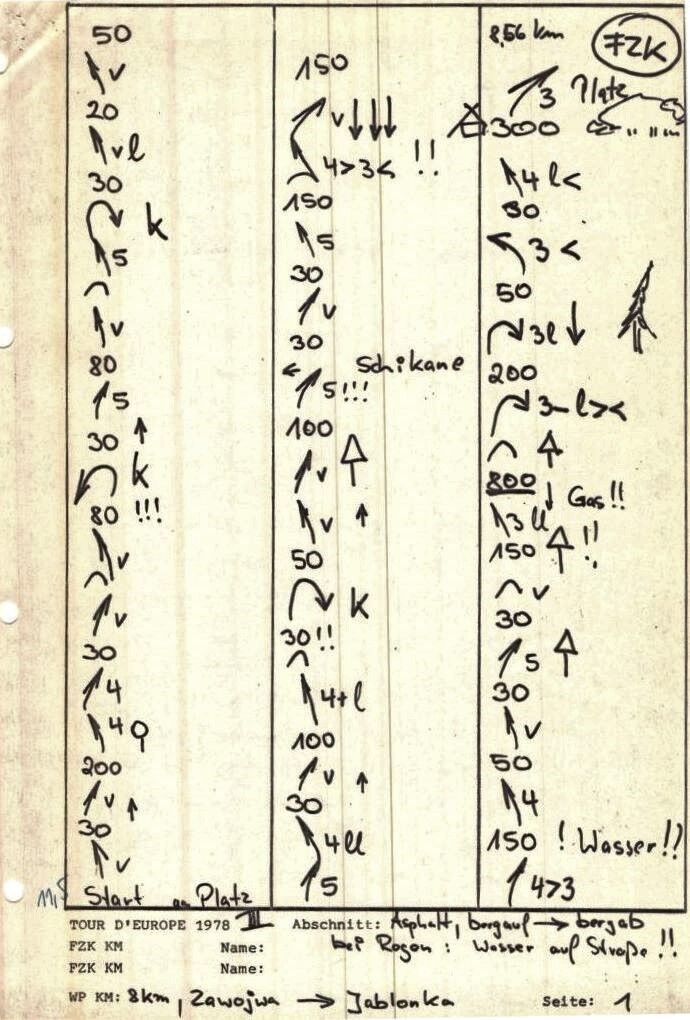 50
v
20
vl
30
k
5
v
80
5
30
k
80 !!!
v
v
30
4
4
200
v
30
v
Start am Platz
150
v
4>3< !!
150
5
30
v
30
Schikane
5!!!
100
v
v
50
k
30!!
4+l
100
v
30
4ll
5
8,56 km
FZK
3 Platz
300
4l<
30
3<
50
3l
200
3-l><
800
Gas!!
3ll
150 !!
v
30
5
30
v
50
4
150 ! Wasser!!
4>3
TOUR D'EUROPE 1978 III Abschnitt: Asphalt, bergauf → bergab
FZK KM Name: bei Regen: Wasser auf Straße!!
FZK KM Name:
WP KM: 8km, Zawojwa → Jablonka Seite: 1